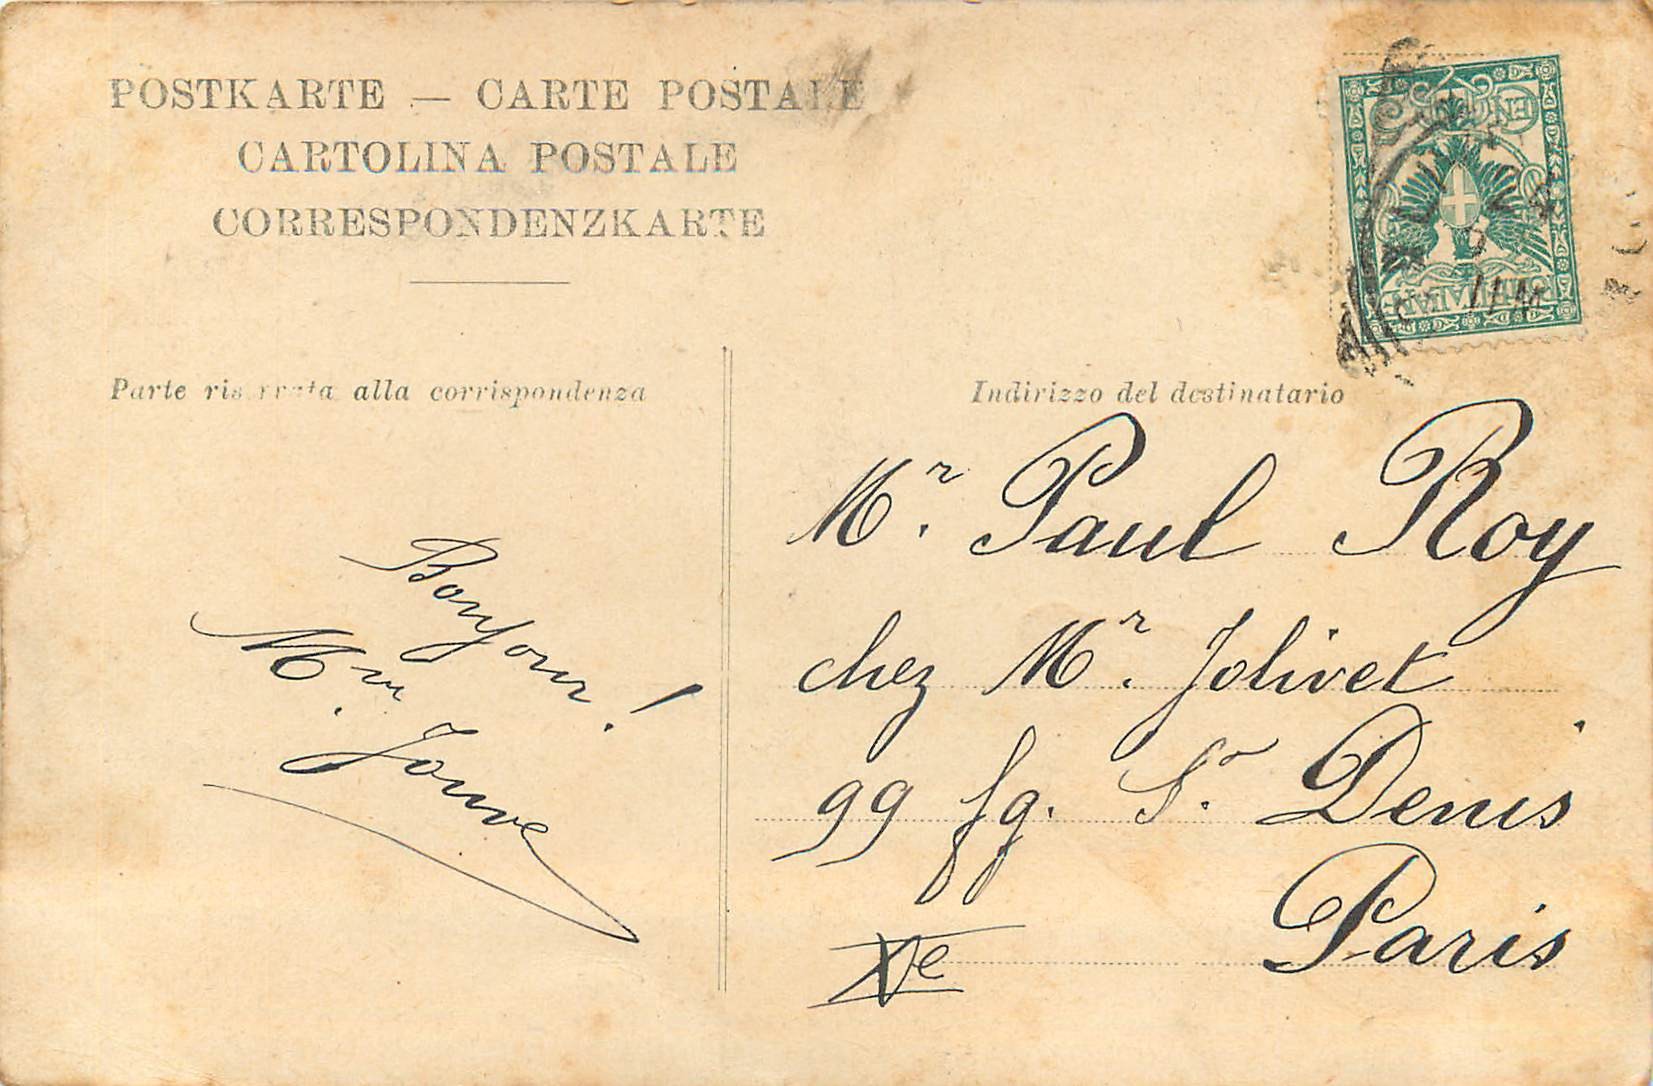 POSTKARTE — CARTE POSTALE
CARTOLINA POSTALE
CORRESPONDENZKARTE
Parte riservata alla corrispondenza
Indirizzo del destinatario
Bonjour !
Jouve
Mr. Paul Roy
chez Mr. Jolivet
99 fg. St. Denis
Paris
Xe